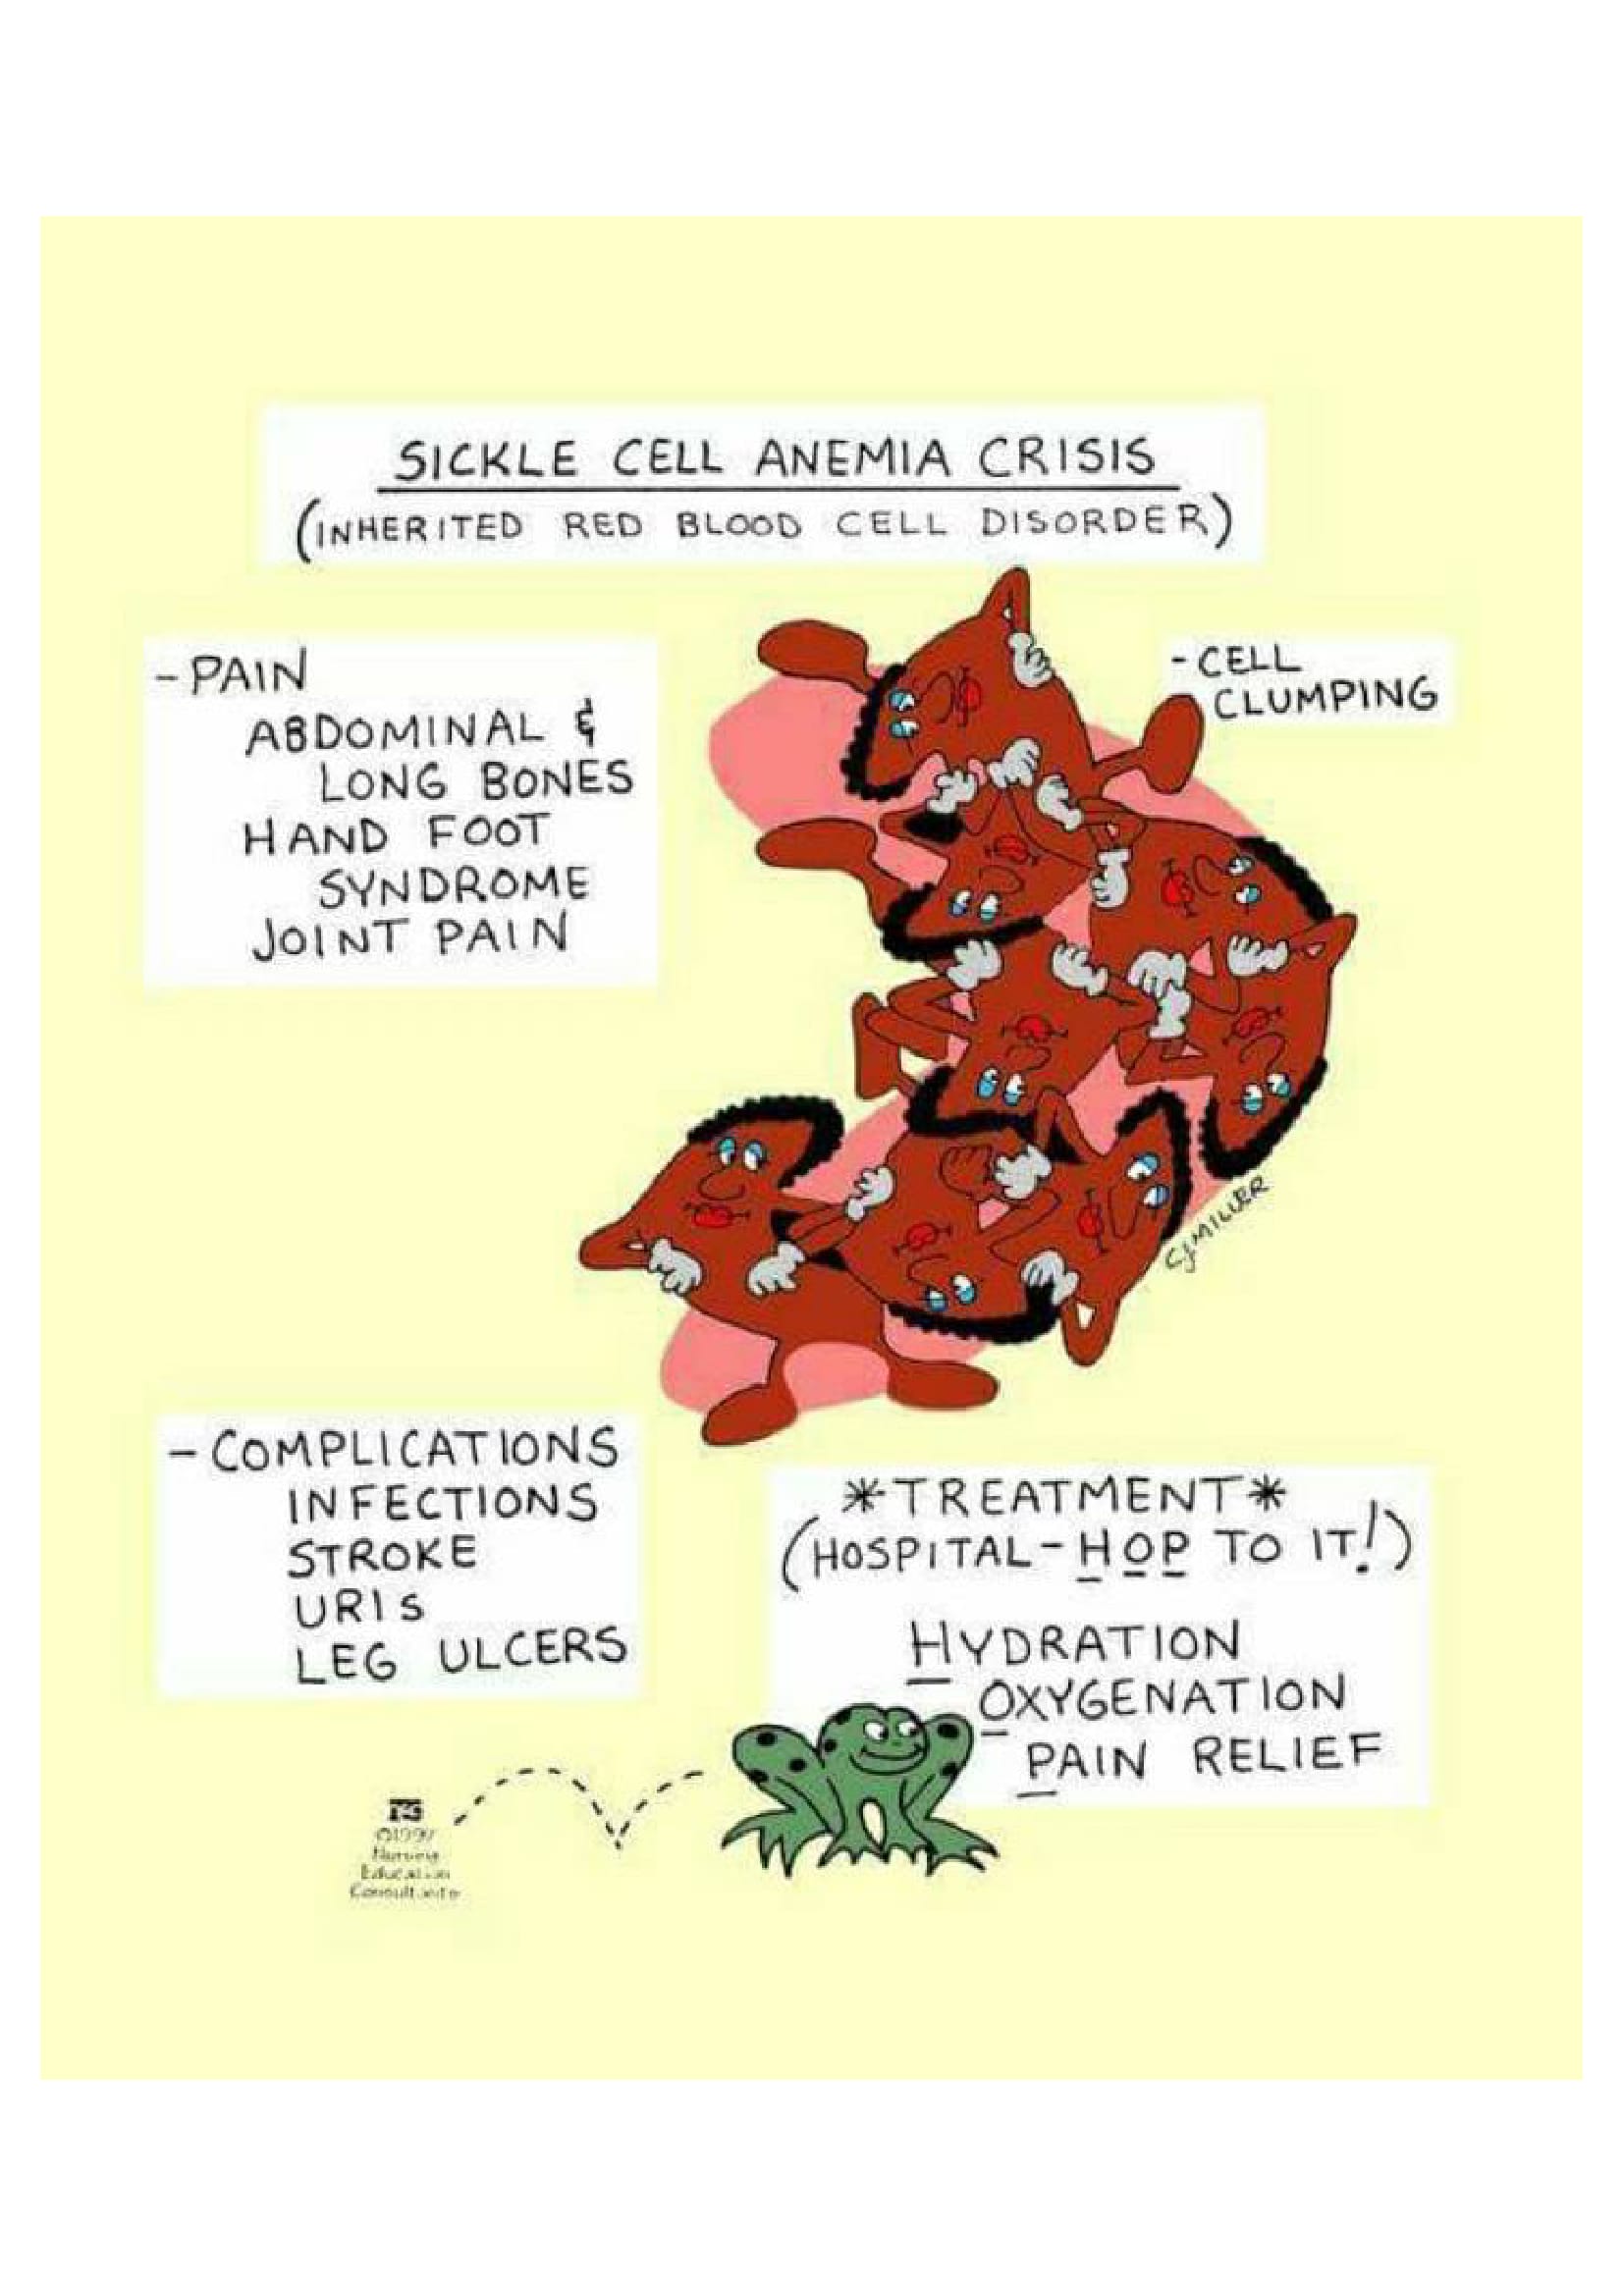 SICKLE CELL ANEMIA CRISIS
(INHERITED RED BLOOD CELL DISORDER)
- PAIN
ABDOMINAL &
LONG BONES
HAND FOOT
SYNDROME
JOINT PAIN
- CELL
CLUMPING
CJMILLER
- COMPLICATIONS
INFECTIONS
STROKE
URIs
LEG ULCERS
*TREATMENT*
(HOSPITAL-HOP TO IT!)
HYDRATION
OXYGENATION
PAIN RELIEF
©1997
Nursing
Education
Consultants